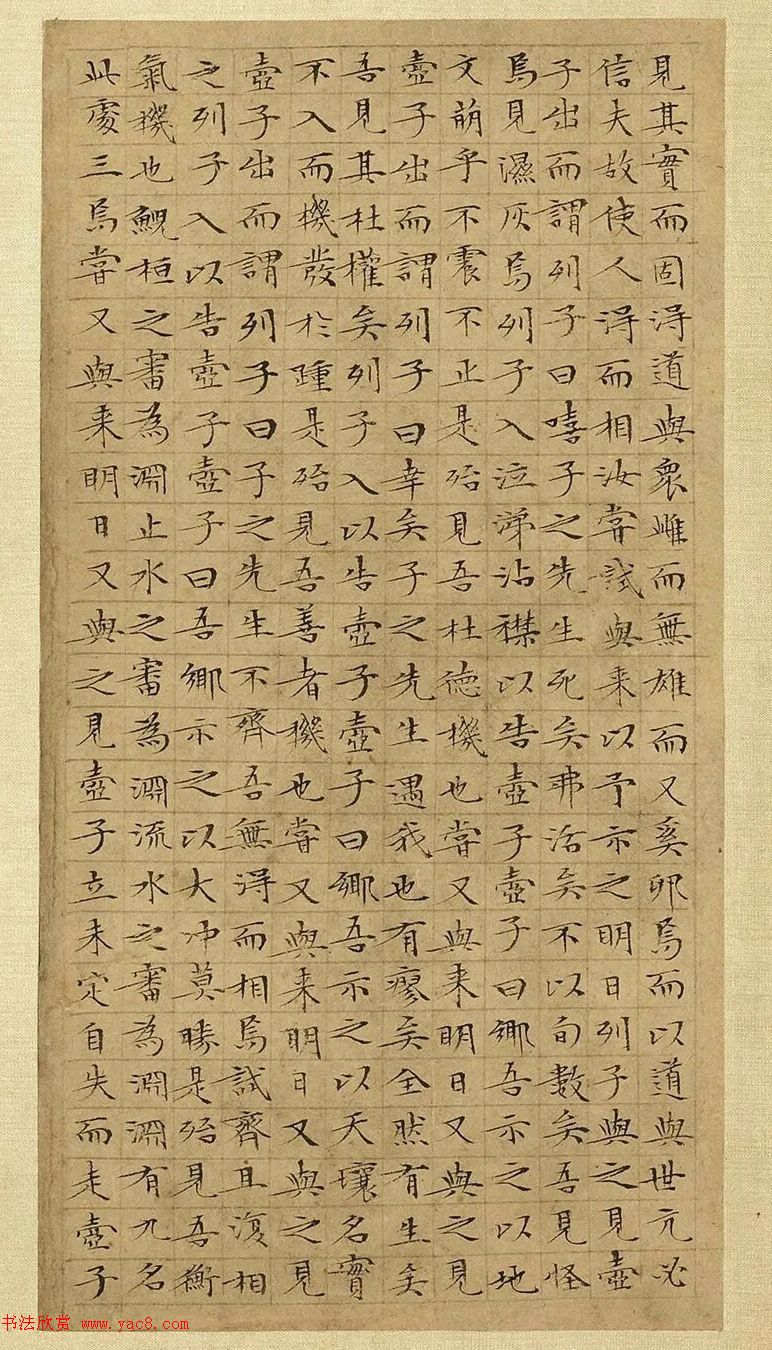 見其實而固得道與衆雌而無雄而又奚卵焉而以道與世亢必
信夫故使人得而相汝嘗試與来以予示之明日列子與之見壺
子出而謂列子曰嘻子之先生死矣弗活矣不以旬數矣吾見怪
焉見濕灰焉列子入泣涕沾襟以告壺子壺子曰鄉吾示之以地
文萌乎不震不止是殆見吾杜德機也嘗又與来明日又與之見
壺子出而謂列子曰幸矣子之先生遇我也有瘳矣全然有生矣
吾見其杜權矣列子入以告壺子壺子曰鄉吾示之以天壤名實
不入而機發於踵是殆見吾善者機也嘗又與来明日又與之見
壺子出而謂列子曰子之先生不齊吾無得而相焉試齊且復相
之列子入以告壺子壺子曰吾鄉示之以大冲莫勝是殆見吾衡
氣機也鯢桓之審為淵止水之審為淵流水之審為淵淵有九名
此處三焉嘗又與来明日又與之見壺子立未定自失而走壺子
书法欣赏 www.yac8.com